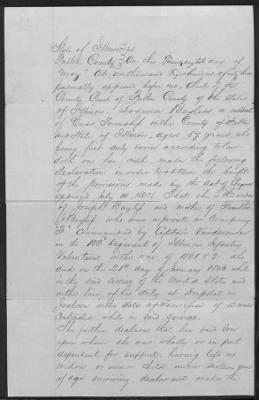 State of Illinois
Fulton County } On this Twenty eighth day of
May AD. one thousand Eight hundred
personally appeared before me, Clerk of the
County Court of Fulton County of the State
of Illinois, Bayless a resident
of Cass Township in the County of Fulton
and State of Illinois, aged 57 years, who
being first duly sworn according to law
doth on her oath made the following
declaration in order to obtain the benefit
of the provisions made by the Act of Congress
approved July 14 1862. That she is the widow
of Joseph Bayless and mother of Franklin
Bayless who was a private in Company
commanded by Captain
in the 103d Regiment of Illinois Infantry
Volunteers in the war of 1861 & 2 who
died on the 21st day of January 1863 while
in the said service of the United States and
in the line of his duty at Hospital in
Jackson in the State of Tennessee of disease
contracted while in said service.
She further declares that her said son
upon whom she was wholly or in part
dependent for support, having left no
widow or minor child under sixteen years
of age surviving. declarant makes this